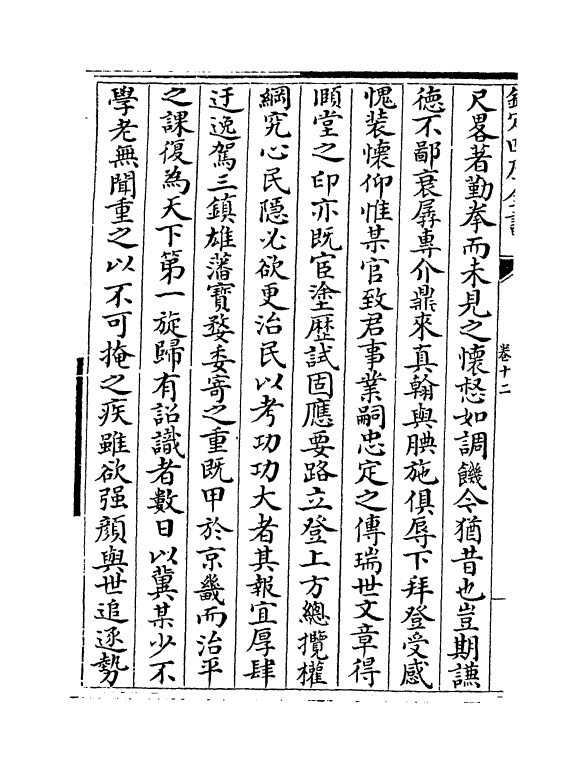 欽定四庫全書
卷十二
尺畧著勤拳而未見之懷惄如調饑今猶昔也豈期謙
徳不鄙衰孱專介鼎來真翰與腆施俱辱下拜登受感
愧裝懷仰惟某官致君事業嗣忠定之傳瑞世文章得
順堂之印亦既宦塗歴試固應要路立登上方總攬權
綱究心民隱必欲更治民以考功功大者其報宜厚肆
迂逸駕三鎮雄藩寳婺委寄之重既甲於京畿而治平
之課復為天下第一旋歸有詔識者數日以冀某少不
學老無聞重之以不可掩之疾雖欲强顔與世追逐勢